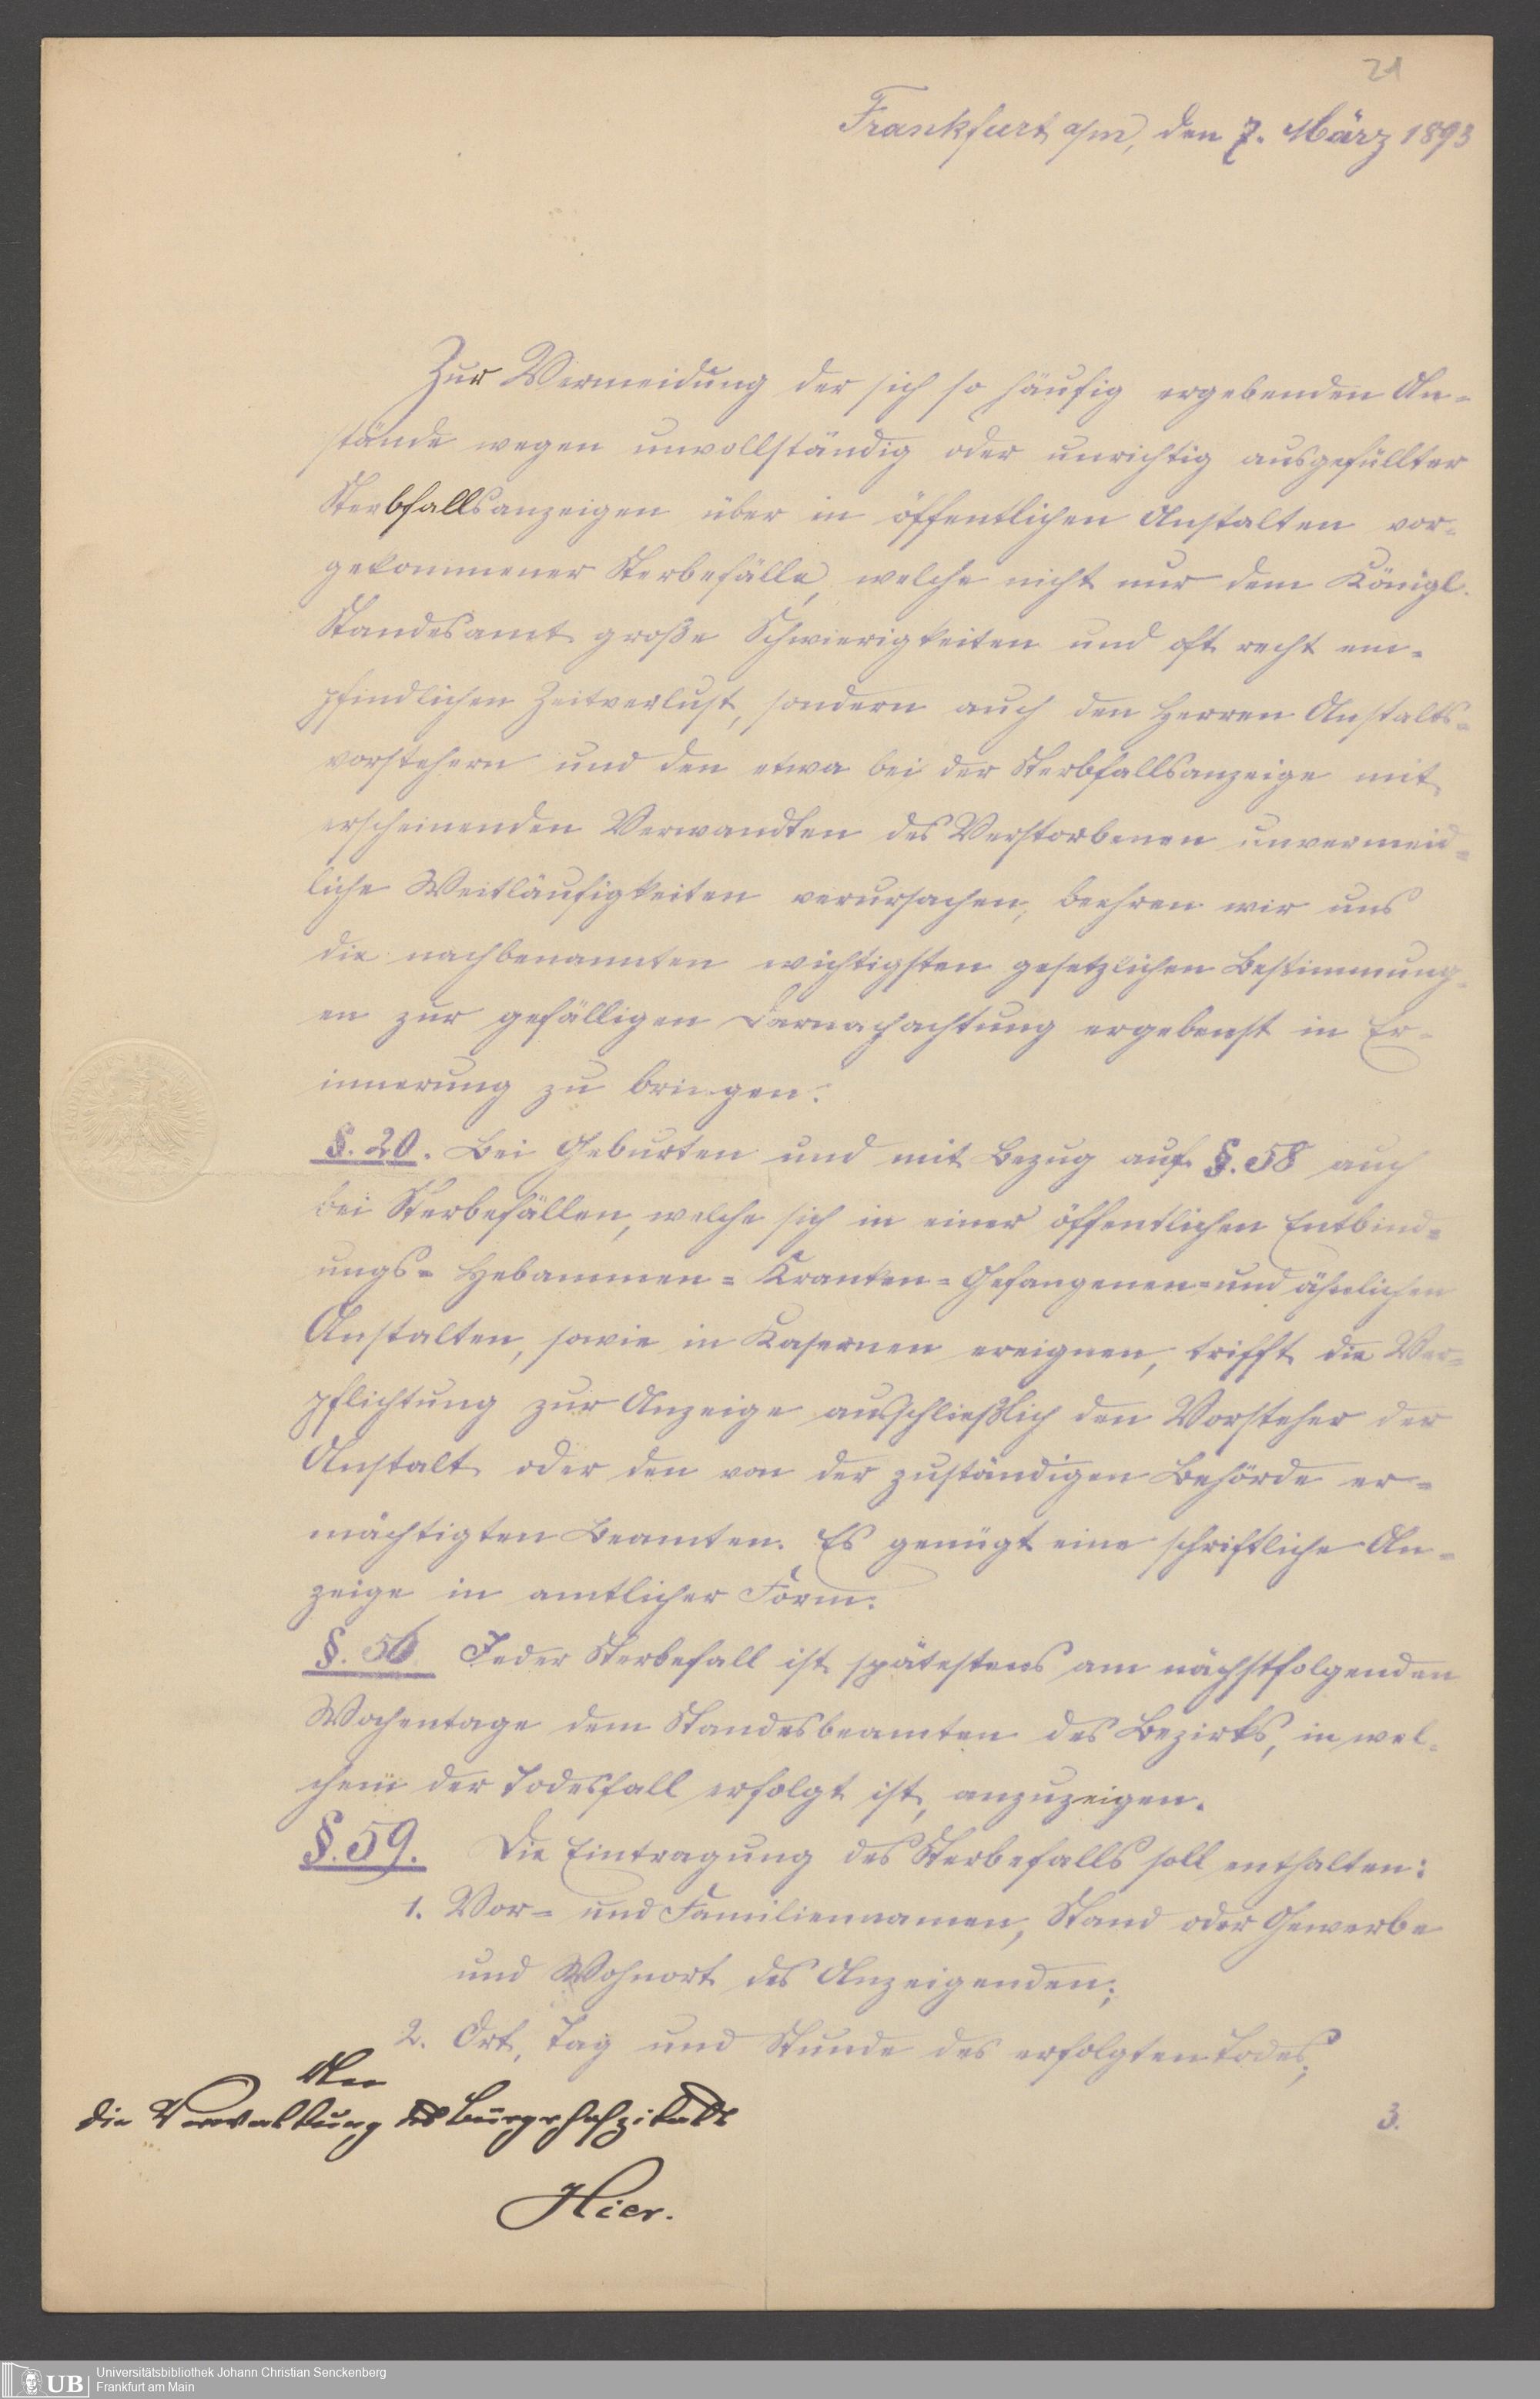 21
Frankfurt a/m, den 7. März 1893
Zur Vermeidung der sich so häufig ergebenden An-
stände wegen unvollständig oder unrichtig ausgefüllter
Sterbfallsanzeigen über in öffentlichen Anstalten vor-
gekommener Sterbefälle, welche nicht nur dem Königl.
Standesamt große Schwierigkeiten und oft recht em-
pfindlichen Zeitverlust, sondern auch den Herren Anstalts-
vorstehern und den etwa bei der Sterbfallsanzeige mit
erscheinenden Verwandten des Verstorbenen unvermeid-
liche Weitläufigkeiten verursachen, beehren wir uns
die nachbenannten wichtigsten gesetzlichen Bestimmung-
en zur gefälligen Darnachachtung ergebenst in Er-
innerung zu bringen:
§. 20. Bei Geburten und mit Bezug auf §. 58 auch
bei Sterbefällen, welche sich in einer öffentlichen Entbind-
ungs- Hebammen- Kranken- Gefangenen- und ähnlichen
Anstalten, sowie in Kasernen ereignen, trifft die Ver-
pflichtung zur Anzeige ausschließlich den Vorsteher der
Anstalt oder den von der zuständigen Behörde er-
mächtigten Beamten. Es genügt eine schriftliche An-
zeige in amtlicher Form.
§. 56 Jeder Sterbefall ist spätestens am nächstfolgenden
Wochentage dem Standesbeamten des Bezirks, in wel-
chem der Todesfall erfolgt ist, anzuzeigen.
§. 59. Die Eintragung des Sterbefalls soll enthalten:
1. Vor- und Familiennamen, Stand oder Gewerbe
und Wohnort des Anzeigenden;
2. Ort, Tag und Stunde des erfolgten Todes;
An
die Verwaltung des Bürgerhospitals
3.
Hier.
UB
Universitätsbibliothek Johann Christian Senckenberg
Frankfurt am Main